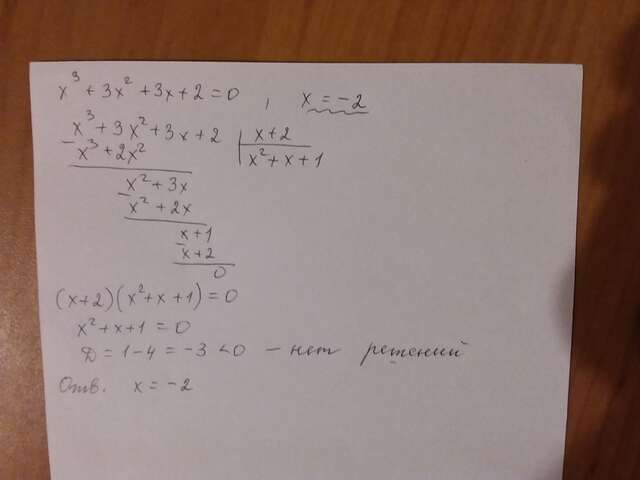 x³ + 3x² + 3x + 2 = 0 , x = -2
x³ + 3x² + 3x + 2 | x + 2
- x³ + 2x² x² + x + 1
x² + 3x
- x² + 2x
x + 1
- x + 2
0
(x+2)(x² + x + 1) = 0
x² + x + 1 = 0
D = 1 - 4 = -3 < 0 – нет решений
Отв. x = -2